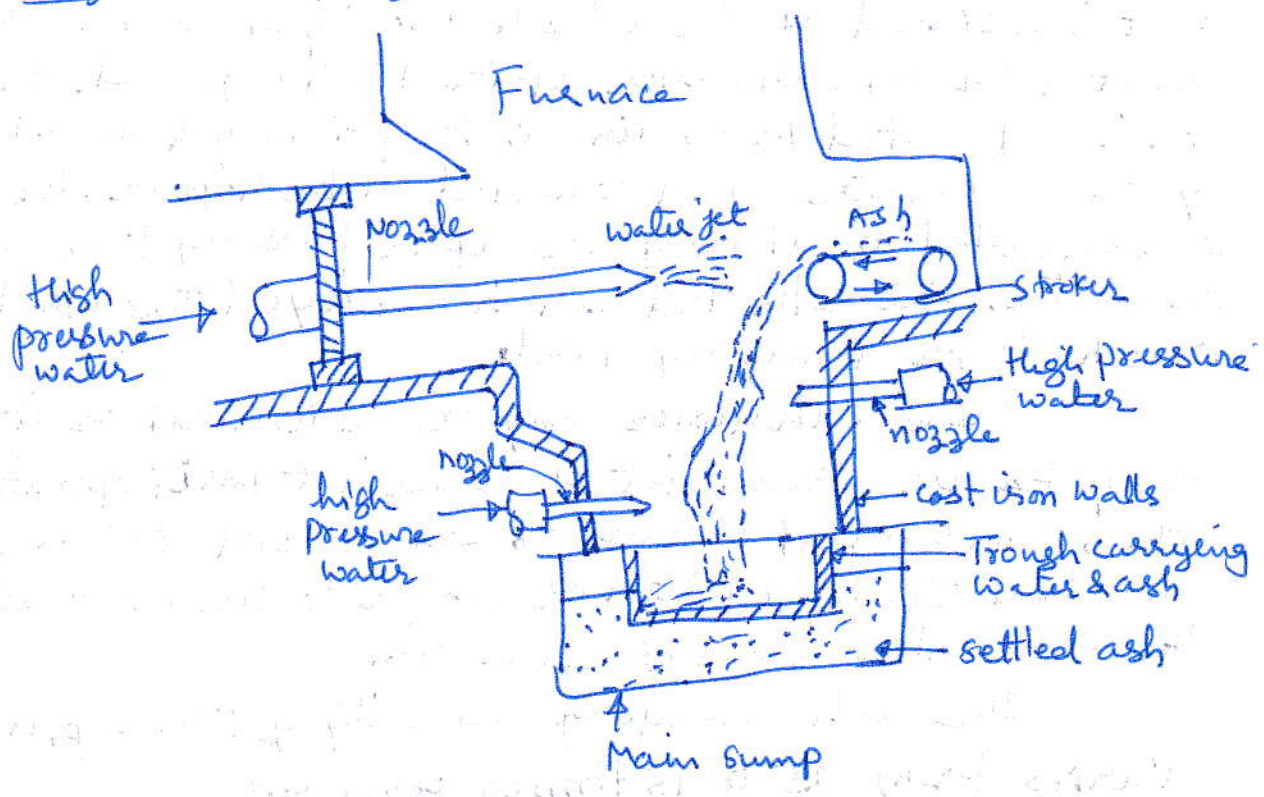 Furnace
Nozzle
water jet
Ash
High
pressure
water
stroker
High pressure
water
nozzle
nozzle
high
pressure
water
cast iron walls
Trough carrying
water & ash
settled ash
Main sump